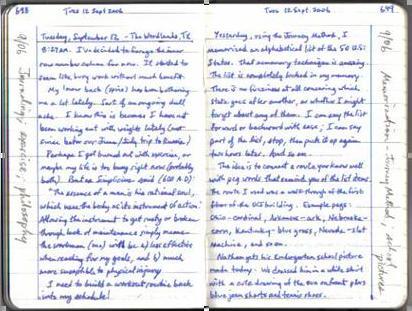 648
Tues 12 Sept 2006
Tuesday, September 12, - The Woodlands, TX
8:27 AM. I've decided to forego the
row number column for now. It started to
seem like busy work without much benefit.
My lower back (spine) has been bothering
me a lot lately. Sort of an ongoing dull
ache. I know this is because I have not
been working out with weights lately (not
since before our June/July trip to Russia)
Perhaps I got burned out with exercise, or
maybe my life is too busy right now (probably
both). But as Simplicius said (601 A D)
"The essence of a man is his rational soul,
which uses the body as its instrument of action."
Allowing the instrument to get rusty or broken
through lack of maintenance simply means
the workman (me) will be a) less effective
when reaching for my goals, and b) much
more susceptible to physical injury.
I need to build a workout routine back
into my schedule!
9/06 Journaling, exercise, philosophy
Tues 12 Sept 2006
649
Yesterday, using the Journey Method, I
memorized an alphabetical list of the 50 U.S.
States. That memory technique is amazing.
The list is completely locked in my memory.
There is no fuzziness at all concerning which
state goes after another, or whether I might
forget about any of them. I can say the list
forward or backward with ease; I can say
part of the list, stop, then pick it up again
two hours later. And so on.
The idea is to connect a route you know well
with peg words that remind you of the list items.
The route I used was a walk-through of the first
floor of the building. Example pegs:
Ohio - cardinal, Arkansas - ark, Nebraska -
corn, Kentucky - blue grass, Nevada - slot
machine, and so on.
Nathan gets his Kindergarten school picture
made today. We dressed him in a white shirt
with a cute drawing of the on front plus
blue jean shorts and tennis shoes.
9/06 Memorization - Journey Method, school pictures